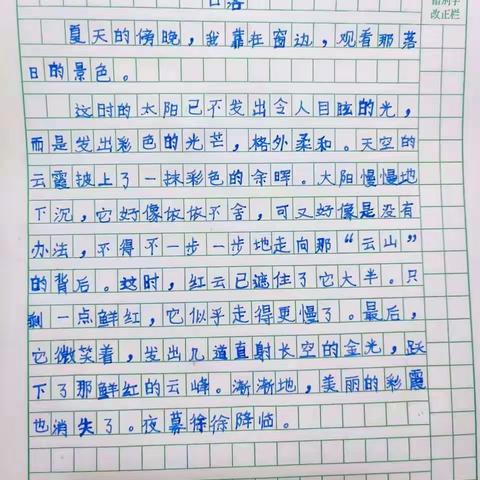 日落
错别字
改正栏
夏天的傍晚，我靠在窗边，观看那落
日的景色。
这时的太阳已不发出令人目眩的光，
而是发出彩色的光芒，格外柔和。天空的
云霞披上了一抹彩色的余晖。大阳慢慢地
下沉，它好像依依不舍，可又好像是没有
办法，不得不一步一步地走向那“云山”
的背后。这时，红云已遮住了它大半。只
剩一点鲜红，它似乎走得更慢了。最后，
它微笑着，发出几道直射长空的金光，跃
下了那鲜红的云峰。渐渐地，美丽的彩霞
也消失了。夜幕徐徐降临。